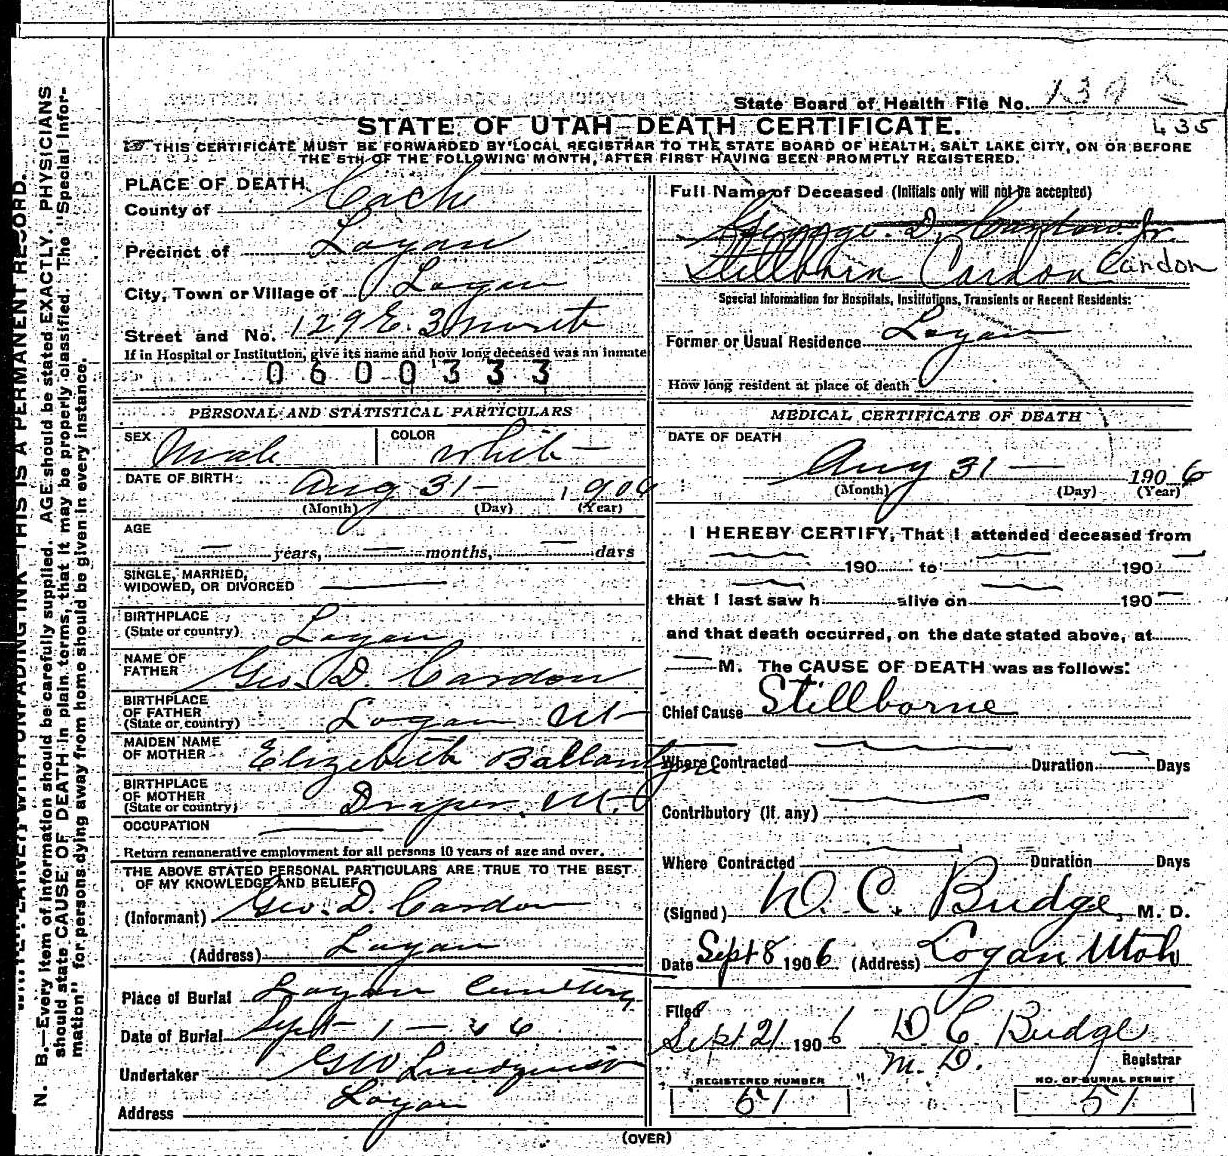 State Board of Health File No. 139
435
STATE OF UTAH—DEATH CERTIFICATE.
THIS CERTIFICATE MUST BE FORWARDED BY LOCAL REGISTRAR TO THE STATE BOARD OF HEALTH, SALT LAKE CITY, ON OR BEFORE
THE 5TH OF THE FOLLOWING MONTH, AFTER FIRST HAVING BEEN PROMPTLY REGISTERED.
PLACE OF DEATH
County of Cache
Precinct of Logan
City, Town or Village of Logan
Street and No. 129 E. 3 North
If in Hospital or Institution, give its name and how long deceased was an inmate
0600333
PERSONAL AND STATISTICAL PARTICULARS
SEX Male COLOR White
DATE OF BIRTH Aug 31 — 1906
(Month) (Day) (Year)
AGE
— years, — months, — days
SINGLE, MARRIED,
WIDOWED, OR DIVORCED —
BIRTHPLACE
(State or country) Logan
NAME OF
FATHER Geo. D. Cardon
BIRTHPLACE
OF FATHER
(State or country) Logan Ut
MAIDEN NAME
OF MOTHER Elizebeth Ballantyne
BIRTHPLACE
OF MOTHER
(State or country) Draper Ut
OCCUPATION —
Return remunerative employment for all persons 10 years of age and over.
THE ABOVE STATED PERSONAL PARTICULARS ARE TRUE TO THE BEST
OF MY KNOWLEDGE AND BELIEF
(Informant) Geo. D. Cardon
(Address) Logan
Place of Burial Logan Cemetery
Date of Burial Sept 1 — 06
Undertaker GW Lindquist
Address Logan
Full Name of Deceased (Initials only will not be accepted)
George D. Cardon Jr
Stillborn Cardon Cardon
Special Information for Hospitals, Institutions, Transients or Recent Residents:
Former or Usual Residence Logan
How long resident at place of death
MEDICAL CERTIFICATE OF DEATH
DATE OF DEATH
Aug 31 — 1906
(Month) (Day) (Year)
I HEREBY CERTIFY, That I attended deceased from
190 to 190 —
that I last saw h alive on 190 —
and that death occurred, on the date stated above, at
— M. The CAUSE OF DEATH was as follows:
Chief Cause Stillborne
Where Contracted — Duration — Days
Contributory (if any) —
Where Contracted — Duration Days
(Signed) D. C. Budge, M. D.
Date Sept 8 1906 (Address) Logan Utah
Filed
Sept 21 1906 D C Budge
M. D. Registrar
REGISTERED NUMBER NO. OF BURIAL PERMIT
51
(OVER)
N. B.—Every item of information should be carefully supplied. AGE should be stated EXACTLY. PHYSICIANS
should state CAUSE OF DEATH in plain terms, that it may be properly classified. The "Special Infor-
mation" for persons dying away from home should be given in every instance.
WITH UNFADING INK—THIS IS A PERMANENT RECORD.